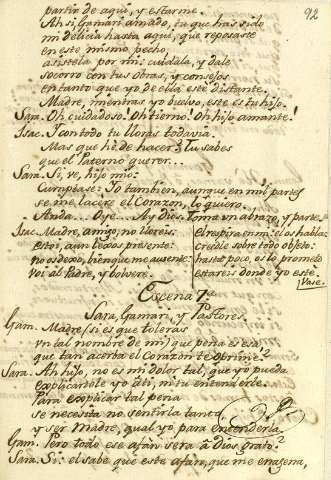 92
partir de aqui, y estarme.
Ah si, Gamari amado, tu que has sido
mi delicia hasta aqui, que reposaste
en este mismo pecho,
asistela por mi: cuidala, y dale
socorro con tus obras, y consejos
en tanto que yo de ella esté distante.
Madre, mientras yo buelvo, este es tu hijo.
Sara. Oh cuidadoso! Oh tierno! Oh hijo amante!
Isac. I con todo tu lloras todavia.
Mas que hé de hacer? Tu sabes
que el Paterno querer...
Sara. Si, ve, hijo mio:
Cumplase: Io tambien, aunque en mil partes
se me lacere el Corazon, lo quiero.
Anda... Oye... Ay Dios. Toma un abrazo, y parte.
Isac. Madre, amigo, no lloreis:
estoi, aun lexos presente:
no os dexo, bien que me ausente:
voi al Padre, y bolvere.
el respira en mi: el os habla:
Credle sobre todo objeto:
hasta poco, os lo prometo
estareis donde yo esté.
Vase.
Escena 7.a
Sara, Gamari, y Pastores.
Gam. Madre, (si es que toleras
un tal nombre de mi) que pena es esa,
que tan acerba el Corazon te oprime?
Sara. Ah hijo, no es mi dolor tal, que yo pueda
explicartele yo á ti, ni tu entenderle.
Para explicar tal pena
se necesita no sentirla tanto,
y ser Madre, qual yo para entenderla.
Gam. Pero todo ese afán será á Dios grato?
Sara. Si: el sabe que este afán, que me enagena,